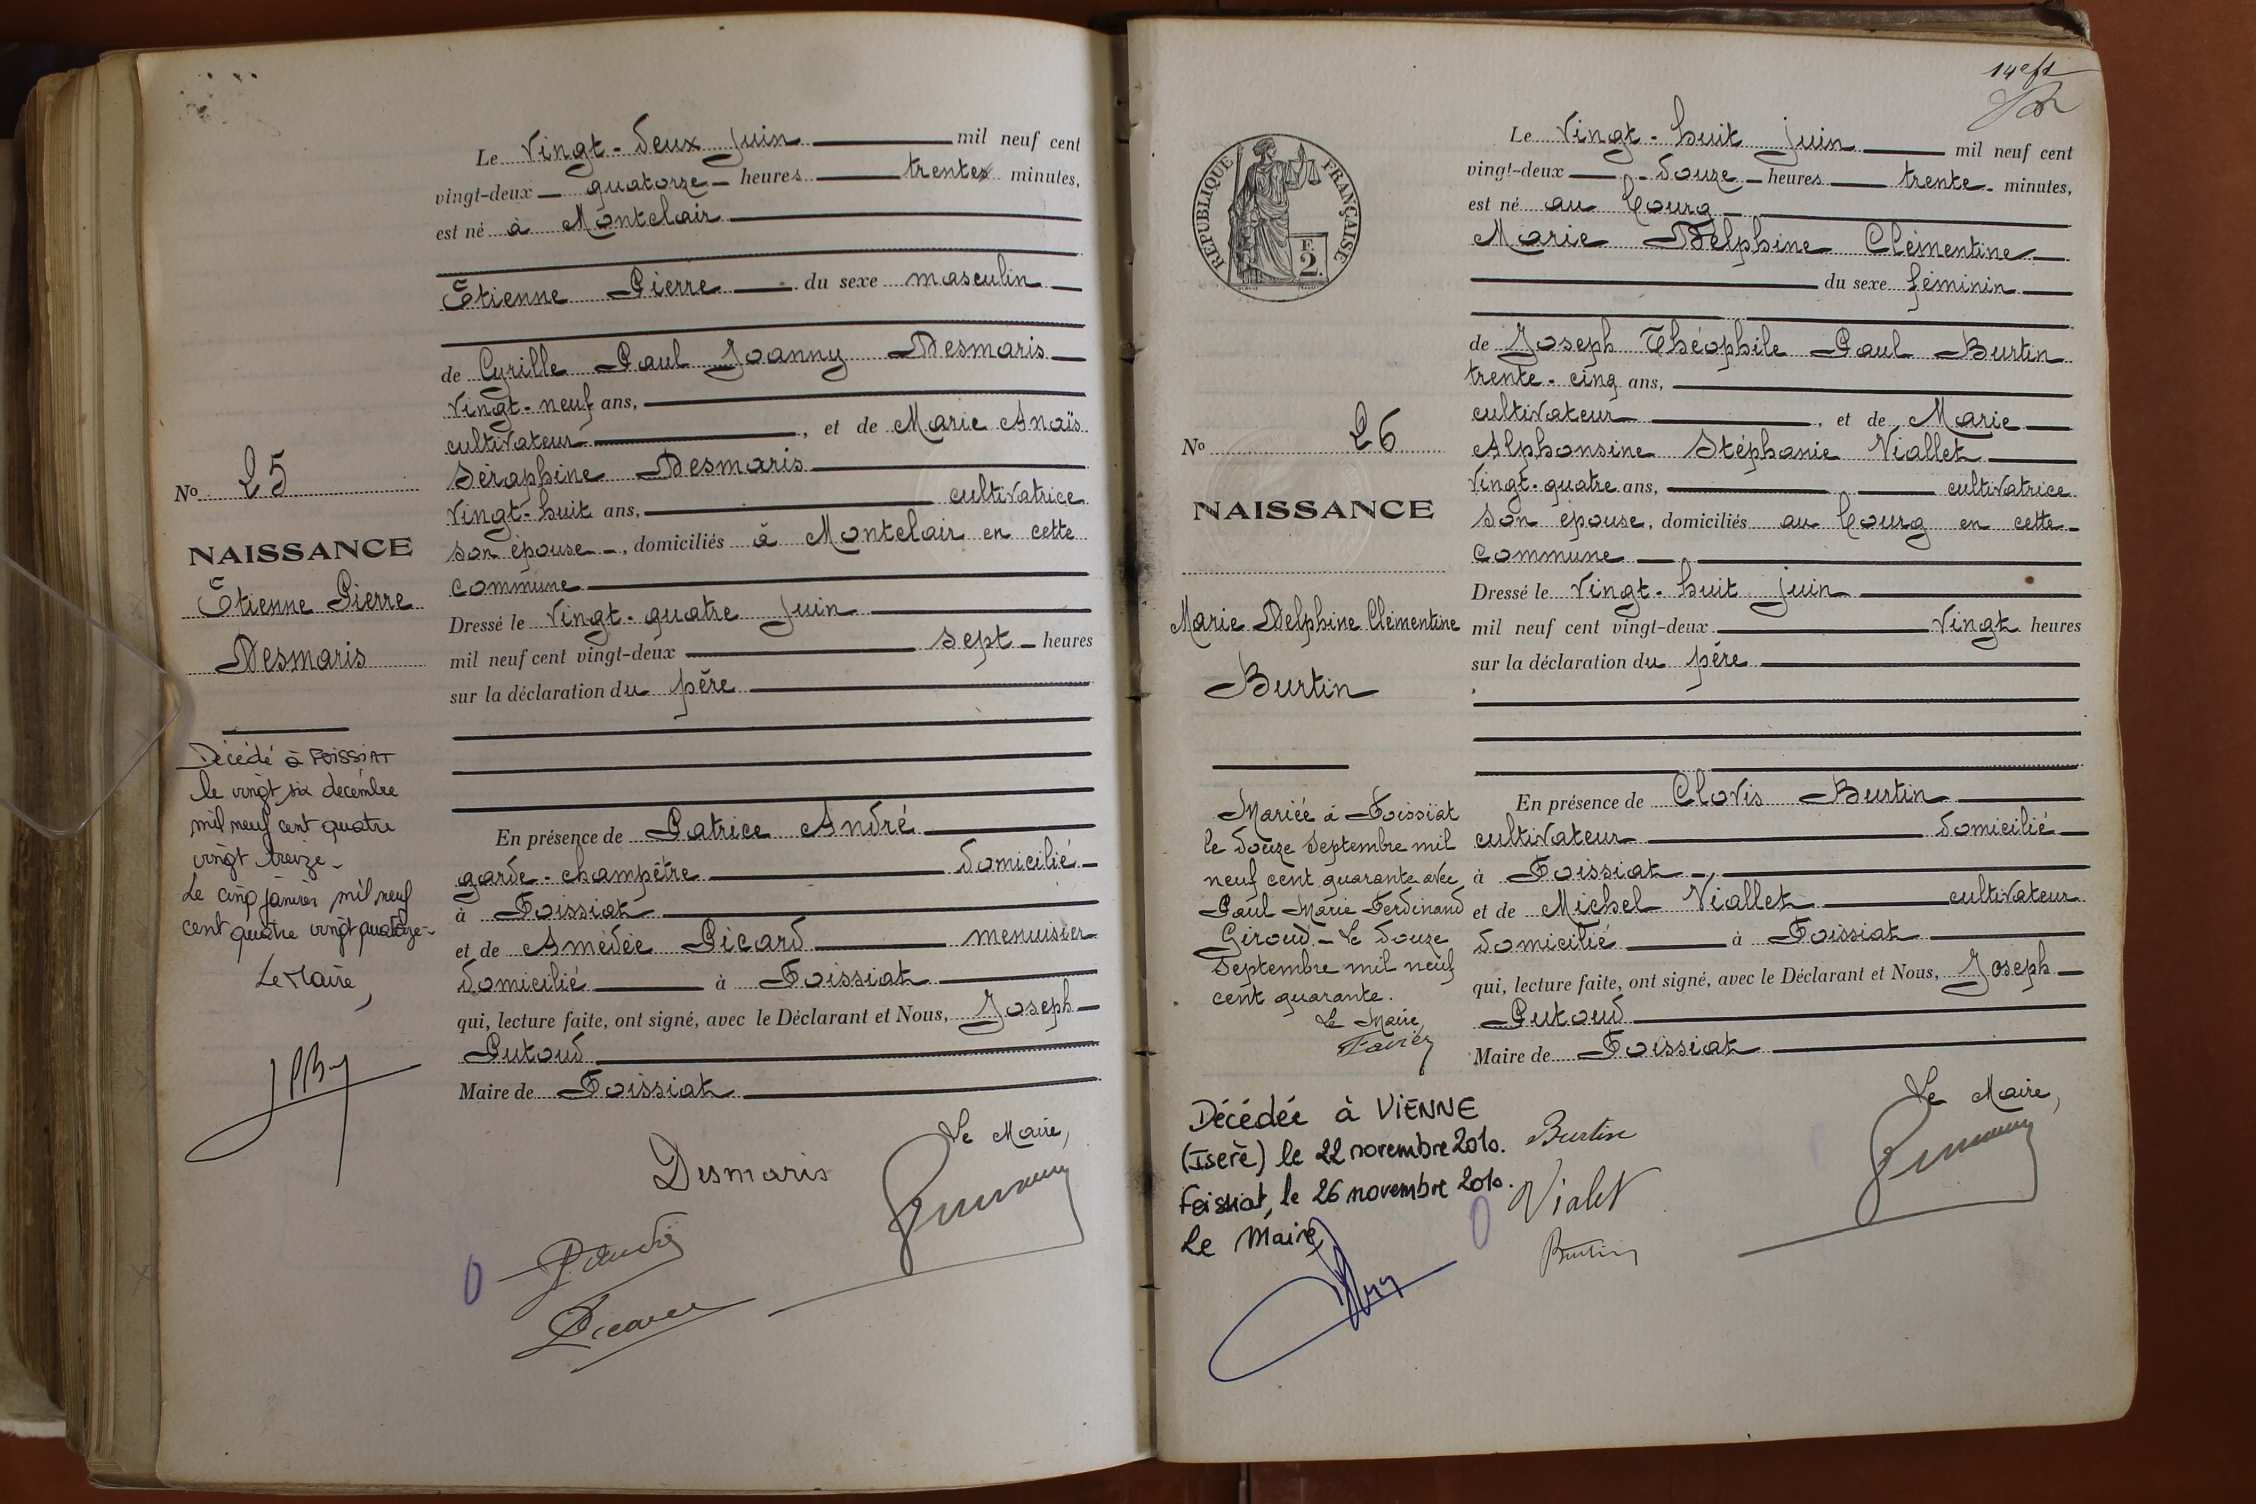 Le Vingt-deux juin mil neuf cent
vingt-deux quatorze heures trente minutes,
est né à Montclair
Etienne Pierre du sexe masculin
de Cyrille Paul Joanny Desmaris
vingt-neuf ans,
cultivateur, et de Marie Anaïs
Séraphine Desmaris
vingt-huit ans, cultivatrice
son épouse, domiciliés à Montclair en cette
commune
Dressé le vingt-quatre juin
mil neuf cent vingt-deux sept heures
sur la déclaration du père
En présence de Patrice André
garde-champêtre domicilié
à Foissiat
et de Amédée Picard menuisier
domicilié à Foissiat
qui, lecture faite, ont signé, avec le Déclarant et Nous, Joseph
Putoud
Maire de Foissiat
Le Maire,
Desmaris
P. André
Picard
No 25
NAISSANCE
Etienne Pierre
Desmaris
Décédé à FOISSIAT
le vingt six décembre
mil neuf cent quatre
vingt treize
Le cinq janvier mil neuf
cent quatre vingt quatorze
Le Maire,
14e ft
RÉPUBLIQUE FRANÇAISE
F.
2.
Le Vingt-huit juin mil neuf cent
vingt-deux douze heures trente minutes,
est né au bourg
Marie Delphine Clémentine
du sexe féminin
de Joseph Théophile Paul Burtin
trente-cinq ans,
cultivateur, et de Marie
Alphonsine Stéphanie Viallet
vingt-quatre ans, cultivatrice
son épouse, domiciliés au bourg en cette
commune
Dressé le vingt-huit juin
mil neuf cent vingt-deux vingt heures
sur la déclaration du père
En présence de Clovis Burtin
cultivateur domicilié
à Foissiat,
et de Michel Viallet cultivateur
domicilié à Foissiat
qui, lecture faite, ont signé, avec le Déclarant et Nous, Joseph
Putoud
Maire de Foissiat
Le Maire,
Burtin
Vialet
Burtin
No 26
NAISSANCE
Marie Delphine Clémentine
Burtin
Mariée à Foissiat
le douze septembre mil
neuf cent quarante avec
Paul Marie Ferdinand
Giroud - Le douze
septembre mil neuf
cent quarante.
Le Maire,
Favier
Décédée à VIENNE
(Isère) le 22 novembre 2010.
Foissiat, le 26 novembre 2010.
Le Maire,